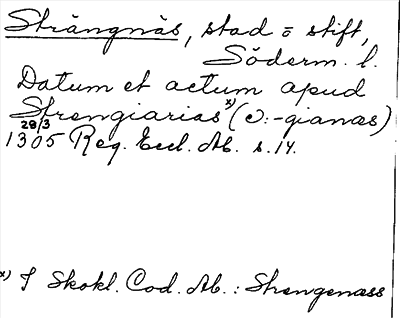 Strängnäs, stad o stift,
Söderm. l.
Datum et actum apud
Strengiarias x) (v: -gianæs)
28/3
1305 Reg. Eccl. Ab. s. 14.
x) I Skokl. Cod. Ab. : Strengenæss